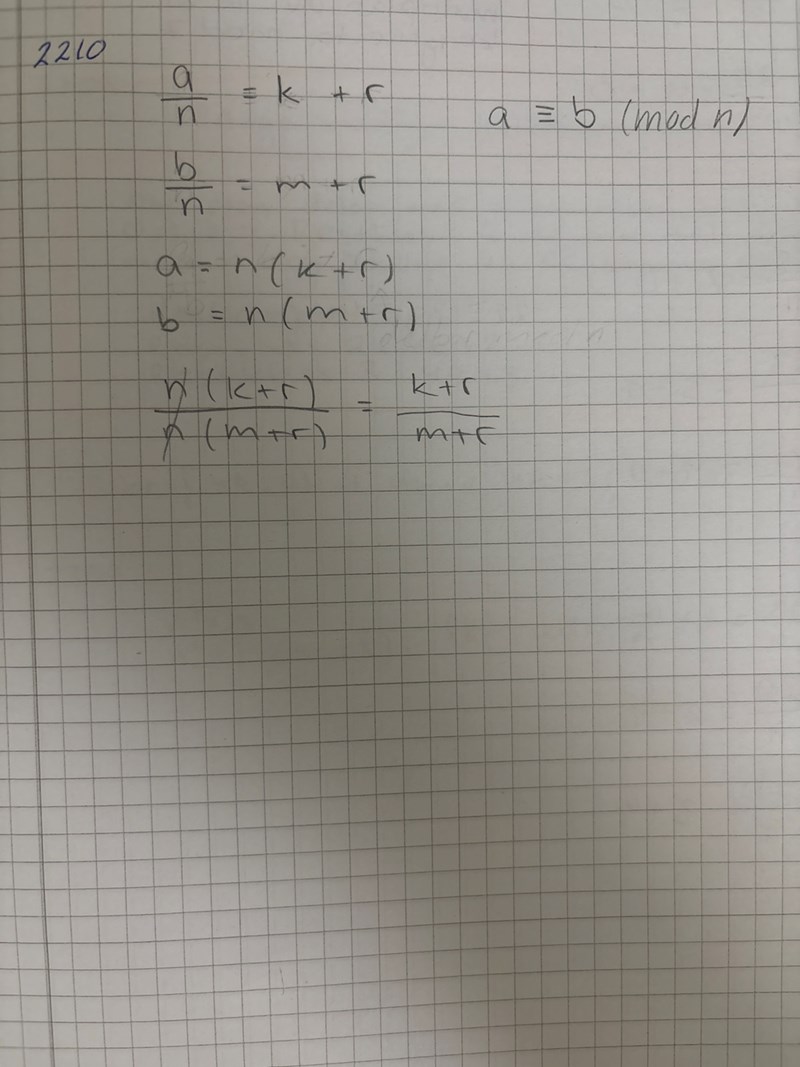 2210
a/n = k + r
a ≡ b (mod n)
b/n = m + r
a = n(k+r)
b = n(m+r)
n(k+r)/n(m+r) = k+r/m+r